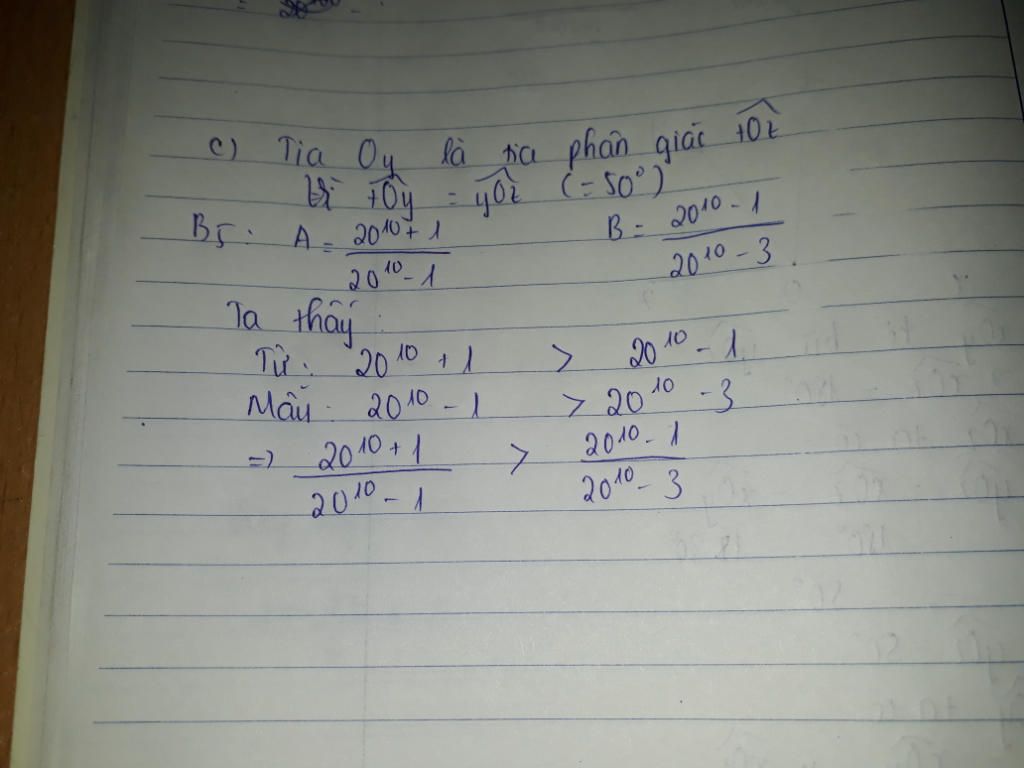 c) Tia Oy là tia phân giác tOz
Vì tOy = yOz (= 50°)
B5: A = (20^10 + 1)/(20^10 - 1) B = (20^10 - 1)/(20^10 - 3)
Ta thấy:
Tử: 20^10 + 1 > 20^10 - 1
Mẫu: 20^10 - 1 > 20^10 - 3
=> (20^10 + 1)/(20^10 - 1) > (20^10 - 1)/(20^10 - 3)